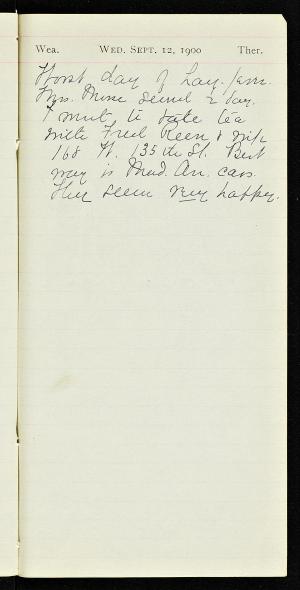 Wea. WED. SEPT. 12, 1900 Ther.
Worst day of hay-fever.
Mrs. Muse sewed 2 day.
I went to take tea
with Fred Keen & wife
168 W. 135th St. Best
way is Mad. Av. cars.
They seem very happy.